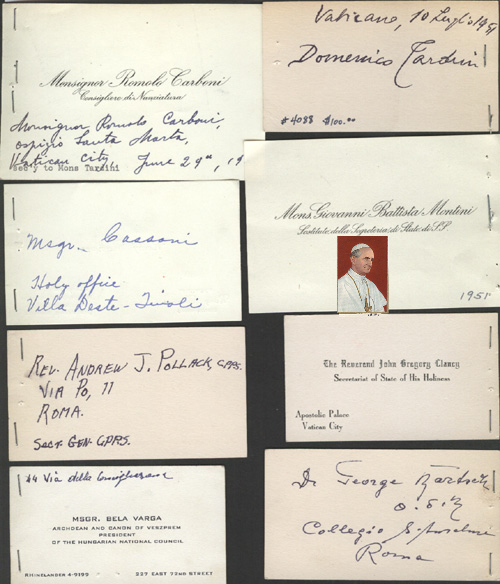 Monsignor Romolo Carboni
Consigliere di Nunziatura
Monsignor Romolo Carboni,
ospizio Santa Marta,
Vatican City, June 29th, 19
sec'y to Mons Tardini
Msgr. Cassoni
Holy office
Villa Deste - Tivoli
REV. ANDREW J. POLLACK, C.PP.S.
VIA PO, 11
ROMA.
SECT. GEN. C.PP.S.
44 Via della
MSGR. BELA VARGA
ARCHDEAN AND CANON OF VESZPREM
PRESIDENT
OF THE HUNGARIAN NATIONAL COUNCIL
RHINELANDER 4-9199
227 EAST 72ND STREET
Vaticano, 10 Luglio 1951
Domenico Tardini
#4088 $100.00
Mons. Giovanni Battista Montini
Sostituto della Segreteria di Stato di S.S.
1951
The Reverend John Gregory Clancy
Secretariat of State of His Holiness
Apostolic Palace
Vatican City
Dr George
O.S.B
Collegio S. Anselmo
Roma